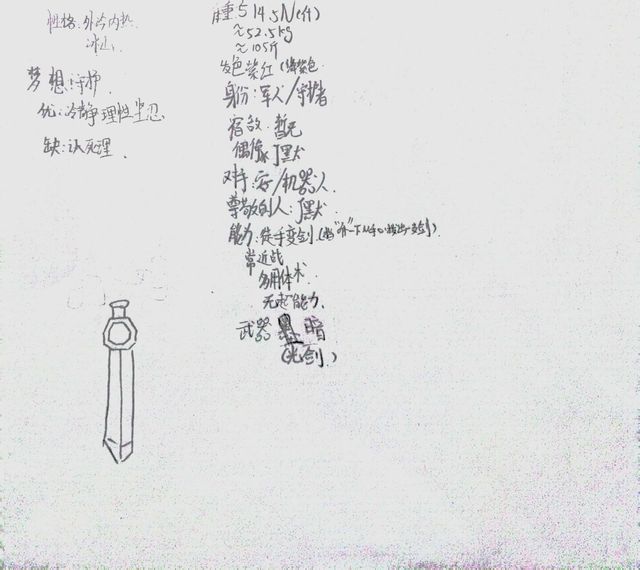 性格:外冷内热
冰山
梦想:守护
优:冷静 理性 坚忍
缺:认死理.
体重:514.5N(牛)
≈52.5kg
≈105斤
发色紫红
身份:军人/守护者
宿敌:暂无
偶像:丁默
对手:安/机器人.
尊敬的人:丁默.
能力:徒手变剑
常近战
多用体术.
无超能力.
武器 暗
(光剑)